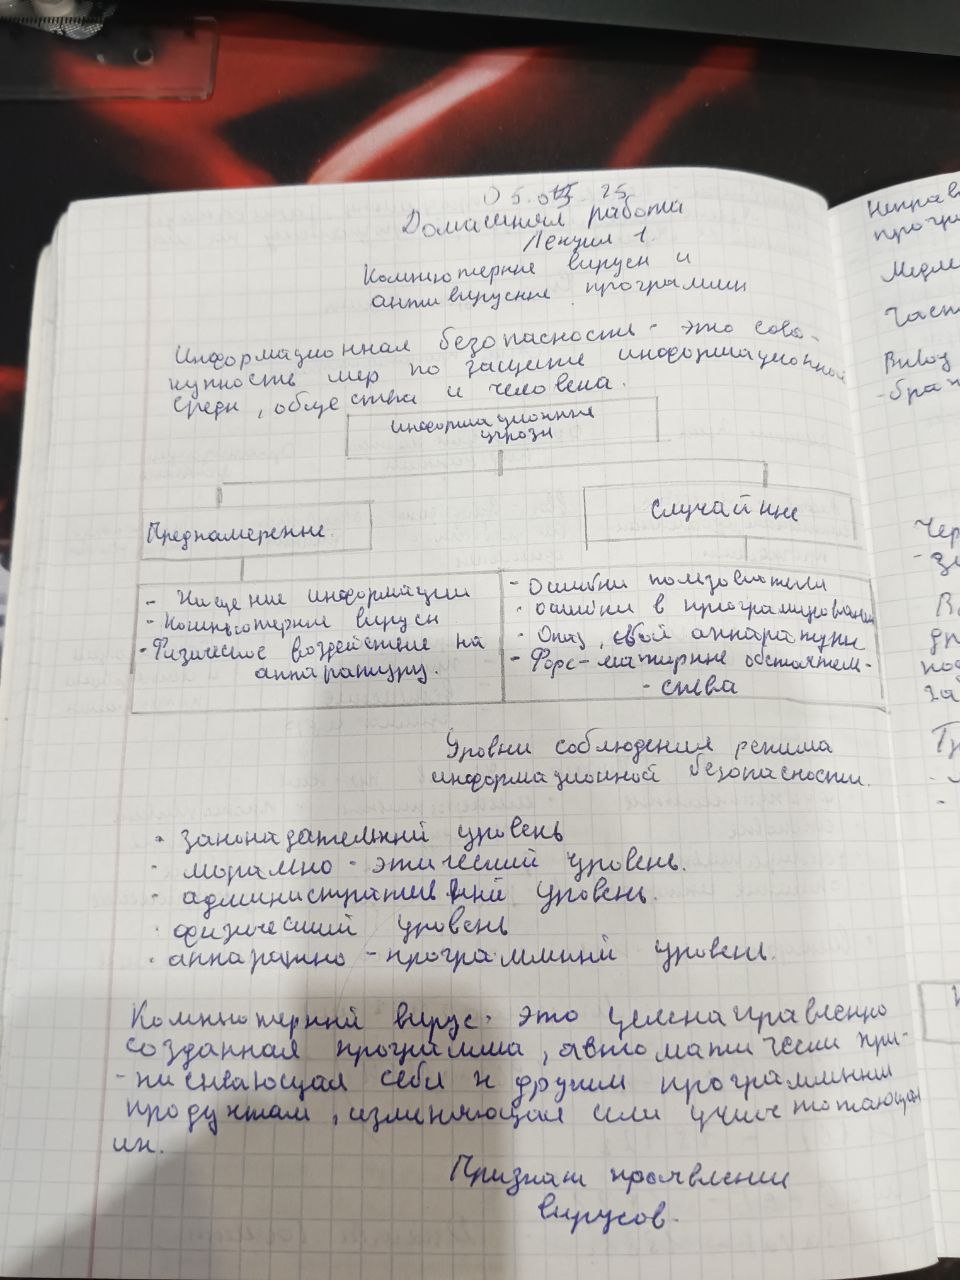 05.03.25
Домашняя работа
Лекция 1.
Компьютерные вирусы и
антивирусные программы
Информационная безопасность - это сово-
купность мер по защите информационной
среды, общества и человека.
Информационные
угрозы
Преднамеренные.
Случайные
- Хищение информации
- Компьютерные вирусы
- Физическое воздействие на
аппаратуру.
- Ошибки пользователя
- ошибки в программировании
- Отказ, сбой аппаратуры
- Форс-мажорные обстоятель-
- ства
Уровни соблюдения режима
информационной безопасности.
· законадательный уровень
· морально - этический уровень.
· административный уровень.
· физический уровень
· аппаратно - программный уровень.
Компьютерный вирус - это целенаправленно
созданная программа, автоматически при-
- писывающая себя к другим программным
продуктам, изменяющая или уничтожающая
их.
Признаки проявления
вирусов.
Неправ
програ
Медле
Част
-бра
Чер